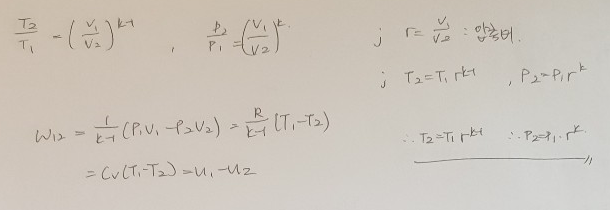 T₂/T₁ = (V₁/V₂)^(k-1) , P₂/P₁ = (V₁/V₂)^k ; r = V₁/V₂ : 압축비.
; T₂ = T₁ r^(k-1) , P₂ = P₁ r^k
W₁₂ = 1/(k-1) (P₁V₁ - P₂V₂) = R/(k-1) (T₁ - T₂)
∴ T₂ = T₁ r^(k-1) ∴ P₂ = P₁ · r^k //
= Cv(T₁ - T₂) = u₁ - u₂